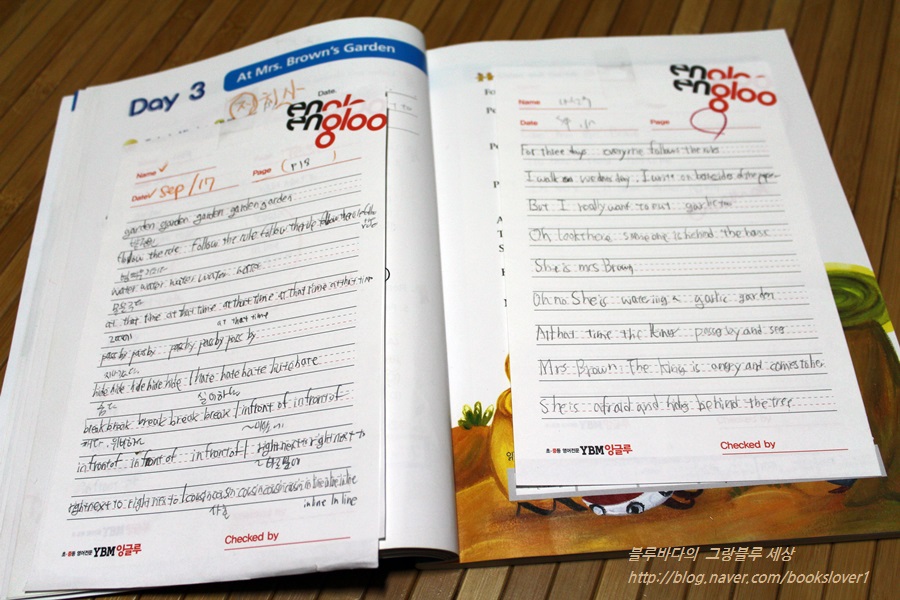 Day 3
At Mrs. Brown's Garden
Date.
engloo
Name
Date Sep/17
Page (P18)
garden garden garden garden garden
follow the rule follow the rule follow the rule follow the rule
water water water water water
at that time at that time at that time at that time at that time
at that time
pass by pass by pass by pass by pass by
hide hide hide hide hide / hate hate hate hate hate
싫어하다
break break break break break / in front of in front of
in front of in front of in front of / right next to right next to
right next to right next to / cousin cousin cousin cousin cousin
in line in line
Checked by
초·중등 영어전문 YBM잉글루
engloo
Name
Date
Page
For three days everyone follows the rules
I walk on wednesday. I write on both sides of the paper
But I really want to eat garlic too
Oh look there someone is behind the house
She is mrs Brown
Oh no She is watering a garlic garden
At that time the King passes by and see
Mrs Brown The King is angry and comes to her
She is afraid and hides behind the tree
초·중등 영어전문 YBM잉글루
Checked by
블루바다의 그랑블루 세상
http://blog.naver.com/bookslover1